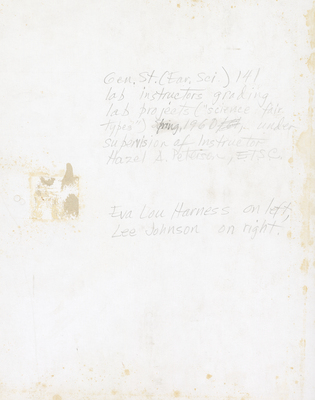 Gen. St. (Ear. Sci.) 141
lab instructors grading
lab projects ("science fair
types") Spring, 1960 under
supervision of Instructor
Hazel A. Peterson, ETSC.
Eva Lou Harness on left,
Lee Johnson on right.